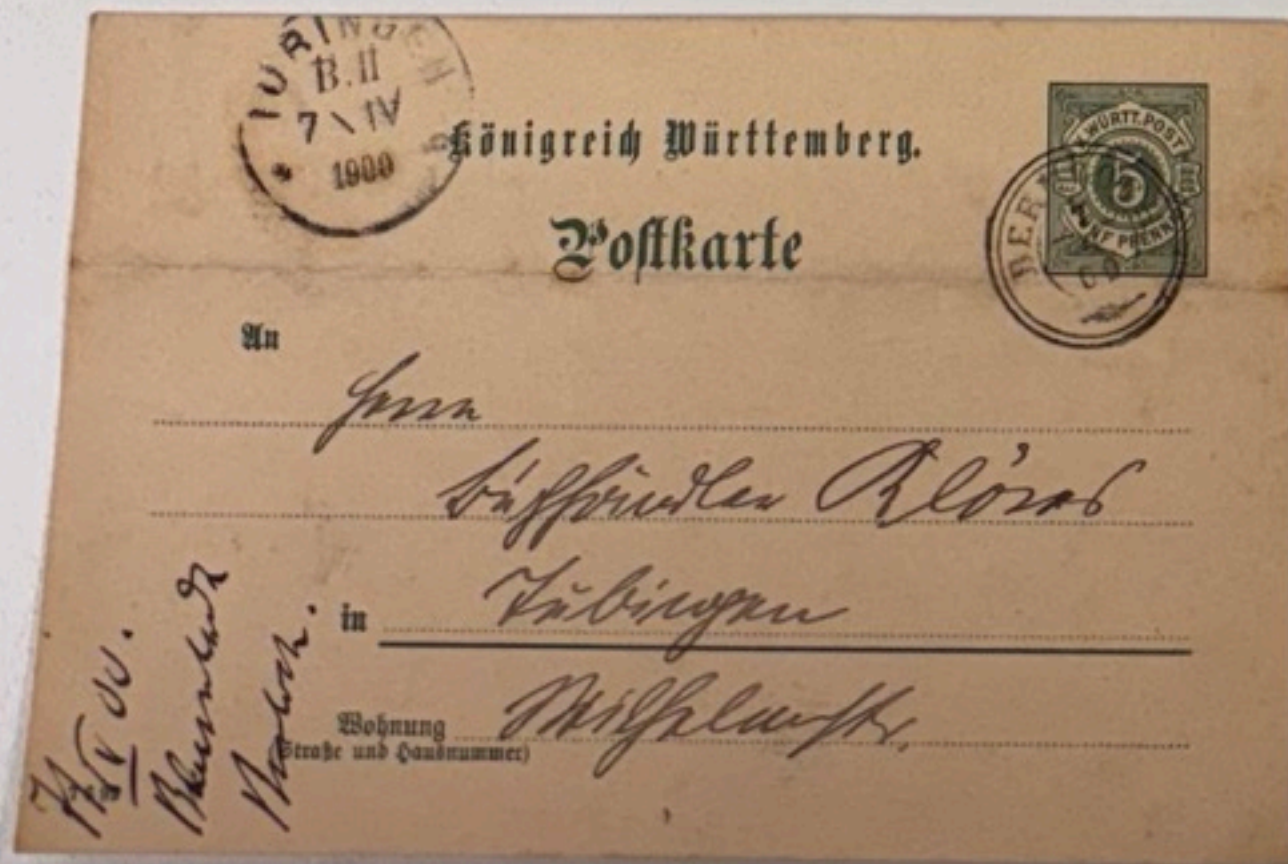 TÜBINGEN
B.II
7 \ IV
1900
Königreich Württemberg.
Postkarte
K. WÜRTT. POST
5
FÜNF PFENNIG
An
Herrn
Buchhändler Klöres
in Tübingen
Wohnung Wilhelmstr.
(Straße und Hausnummer)